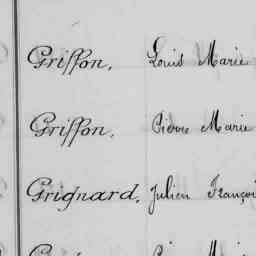 Griffon, Louis Marie
Griffon, Pierre Marie
Grignard, Julien Françoi